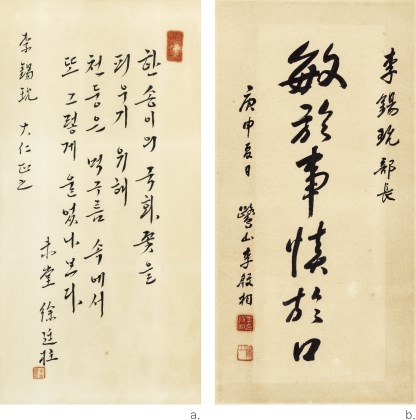 한 송이의 국화꽃을
피우기 위해
천둥은 먹구름 속에서
또 그렇게 울었나보다.
未堂 徐廷柱
李錫玧 大仁正之
a.
李錫玧部長
敏於事慎於口
庚申夏日 鷺山李殷相
b.